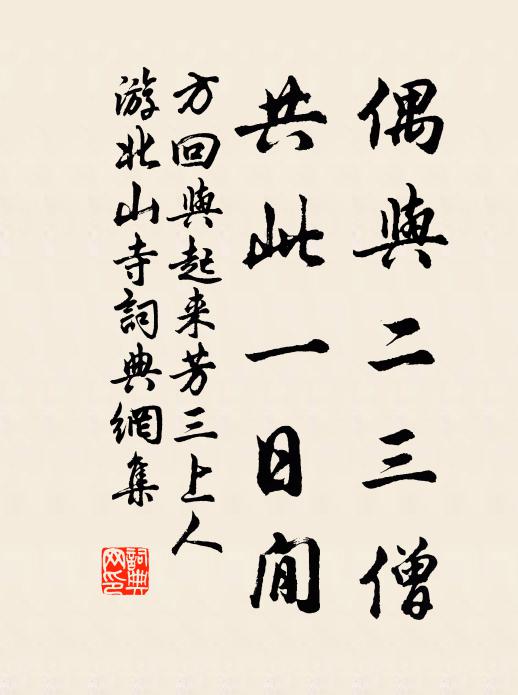 偶與二三僧
共此一日閒
方回與起来芳三上人
游北山寺詞典網集
詞典
网印